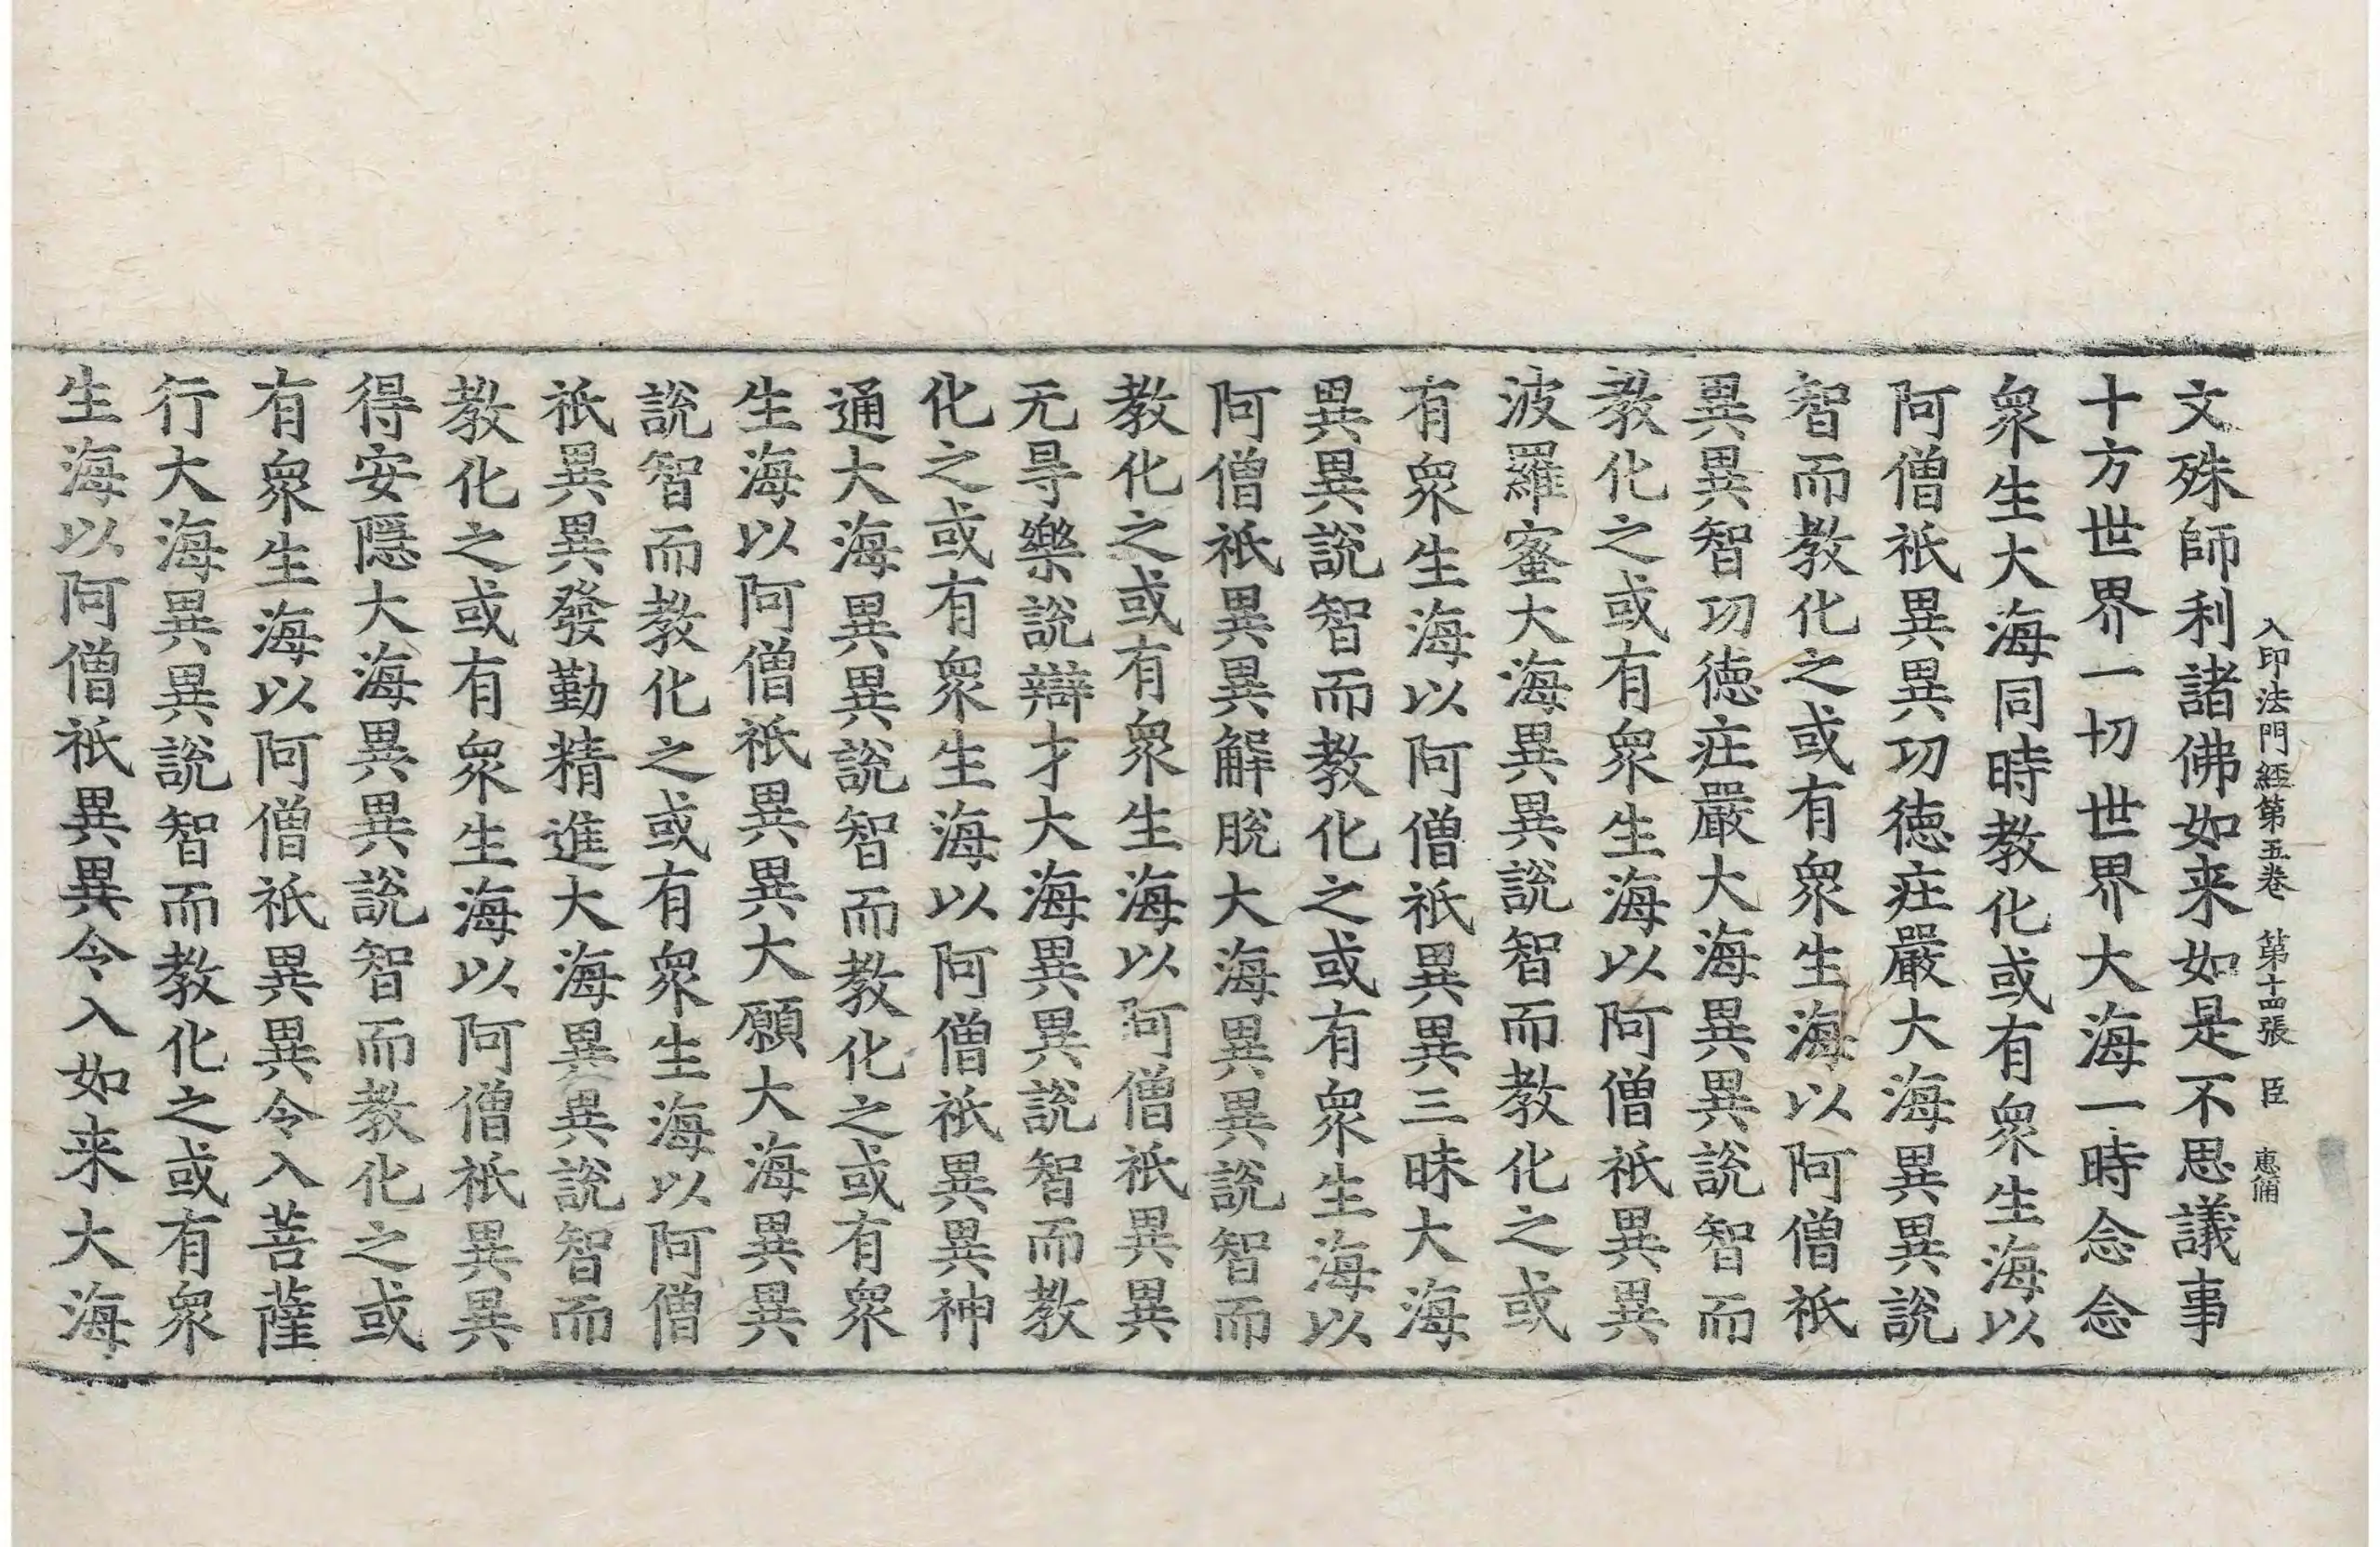 入印法門經第五卷 第十四張 臣 惠俌
文殊師利諸佛如来如是不思議事
十方世界一切世界大海一時念念
衆生大海同時教化或有衆生海以
阿僧祇異異功徳庄嚴大海異異說
智而教化之或有衆生海以阿僧祇
異異智功徳庄嚴大海異異說智而
教化之或有衆生海以阿僧祇異異
波羅蜜大海異異說智而教化之或
有衆生海以阿僧祇異異三昧大海
異異說智而教化之或有衆生海以
阿僧祇異異解脫大海異異說智而
教化之或有衆生海以阿僧祇異異
无㝵樂說辯才大海異異說智而教
化之或有衆生海以阿僧祇異異神
通大海異異說智而教化之或有衆
生海以阿僧祇異異大願大海異異
說智而教化之或有衆生海以阿僧
祇異異發勤精進大海異異說智而
教化之或有衆生海以阿僧祇異異
得安隱大海異異說智而教化之或
有衆生海以阿僧祇異異令入菩薩
行大海異異說智而教化之或有衆
生海以阿僧祇異異令入如来大海